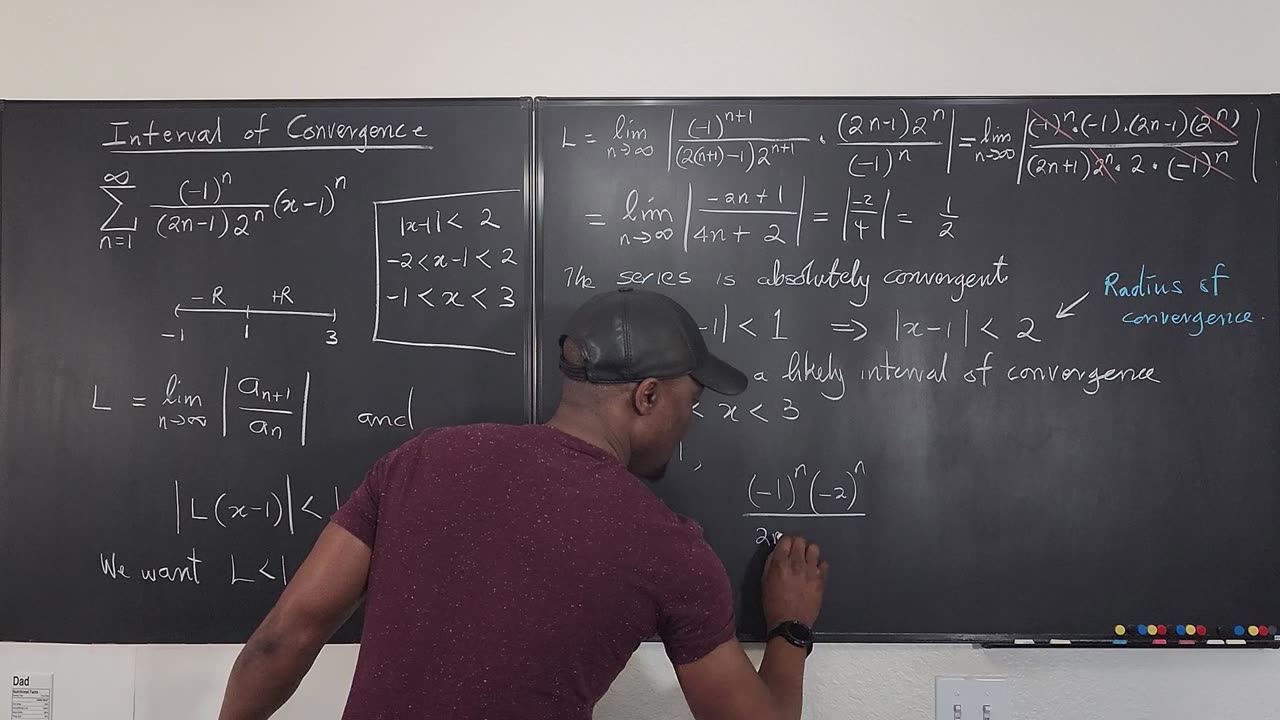 Interval of Convergence
∞
∑ (-1)^n / (2n-1)2^n (x-1)^n
n=1
|x-1| < 2
-2 < x-1 < 2
-1 < x < 3
-R +R
-1 1 3
L = lim n→∞ |a_{n+1} / a_n| and
|L(x-1)| <
We want L<1
L = lim n→∞ |(-1)^{n+1} / (2(n+1)-1)2^{n+1} · (2n-1)2^n / (-1)^n| = lim n→∞ |(-1)^n·(-1)·(2n-1)(2^n) / (2n+1)2^n·2·(-1)^n|
= lim n→∞ |-2n+1 / 4n+2| = |-2/4| = 1/2
The series is absolutely convergent
-1| < 1 ⇒ |x-1| < 2
Radius of
convergence.
a likely interval of convergence
< x < 3
1,
(-1)^n (-2)^n
2n
Dad